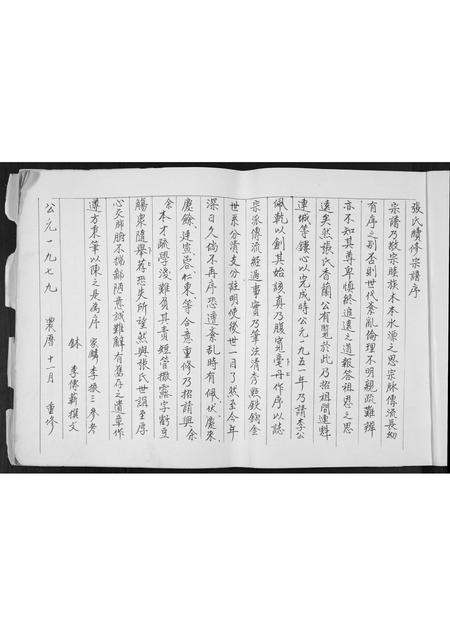 張氏續修宗譜序
宗譜乃敬宗睦族木本水源之思宗脉傳流長幼
有序之別否則世代紊亂倫理不明親疏難辨
亦不知其尊卑慎終追遠之道報答祖恩之思
遠矣然張氏香蘭公有鑒於此乃招祖間連
連城等鏤心以完成時公元一九五一年乃請李公
佩軌以創其始該真乃腹實毫丹作序以誌
宗派傳流經過事實乃筆法清秀然鉄鉤金
世系分清支分註明使後世一目了然至今年
深日久倘不再序恐遭紊亂時有佩伏慶來
慶餘廷憲啓仁東等合意重修乃招請與余
余本才疏學淺難負其責短管撒露字齡豆
觴衆隨舉荐恐失所望然與張氏世誼至厚
心交肺腑不揣鄙陋意誠難辭有舊存之遺章作
遵方東筆以陳之是為序 家麟 李振三 參考
鉢 李傳薪撰文
公元一九七九 農曆十一月 重修